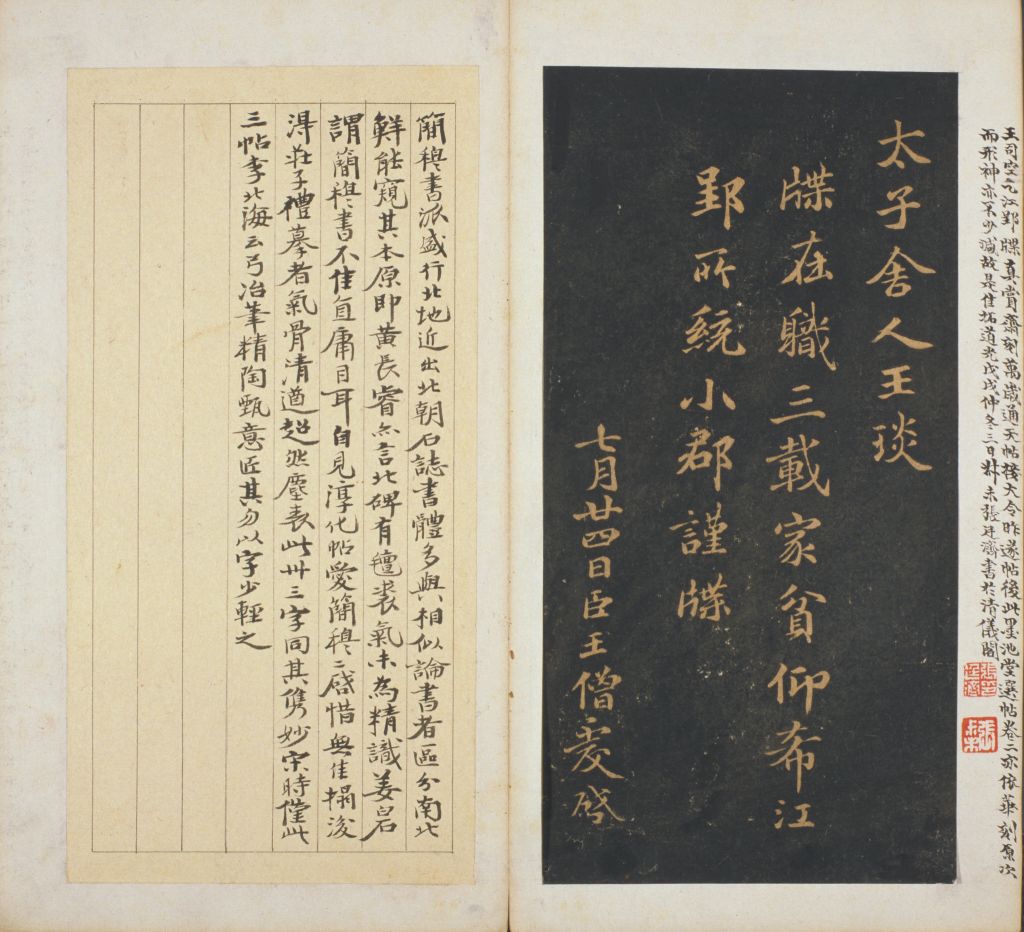 王司空之九江郢牒真賞齋刻萬歲通天帖接大令昨遂帖後此墨池堂選帖卷二亦依華刻原次
而形神亦不少減故是佳拓道光戊戌仲冬三日叔未張廷濟書於清儀閣
太子舍人王琰
牒在職三載家貧仰希江
郢所統小郡謹牒
七月廿四日臣王僧虔啓
簡穆書派盛行北地近出北朝石誌書體多與相似論書者區分南北
鮮能窺其本原即黃長睿亦言北碑有氊裘氣未為精識姜白石
謂簡穆書不佳直庸目耳自見淳化帖愛簡穆二啓惜無佳搨後
淂莊子禮摹者氣骨清遒超然塵表此卅三字同其雋妙宋時僅此
三帖李北海云弓冶筆精陶甄意匠其勿以字少輕之